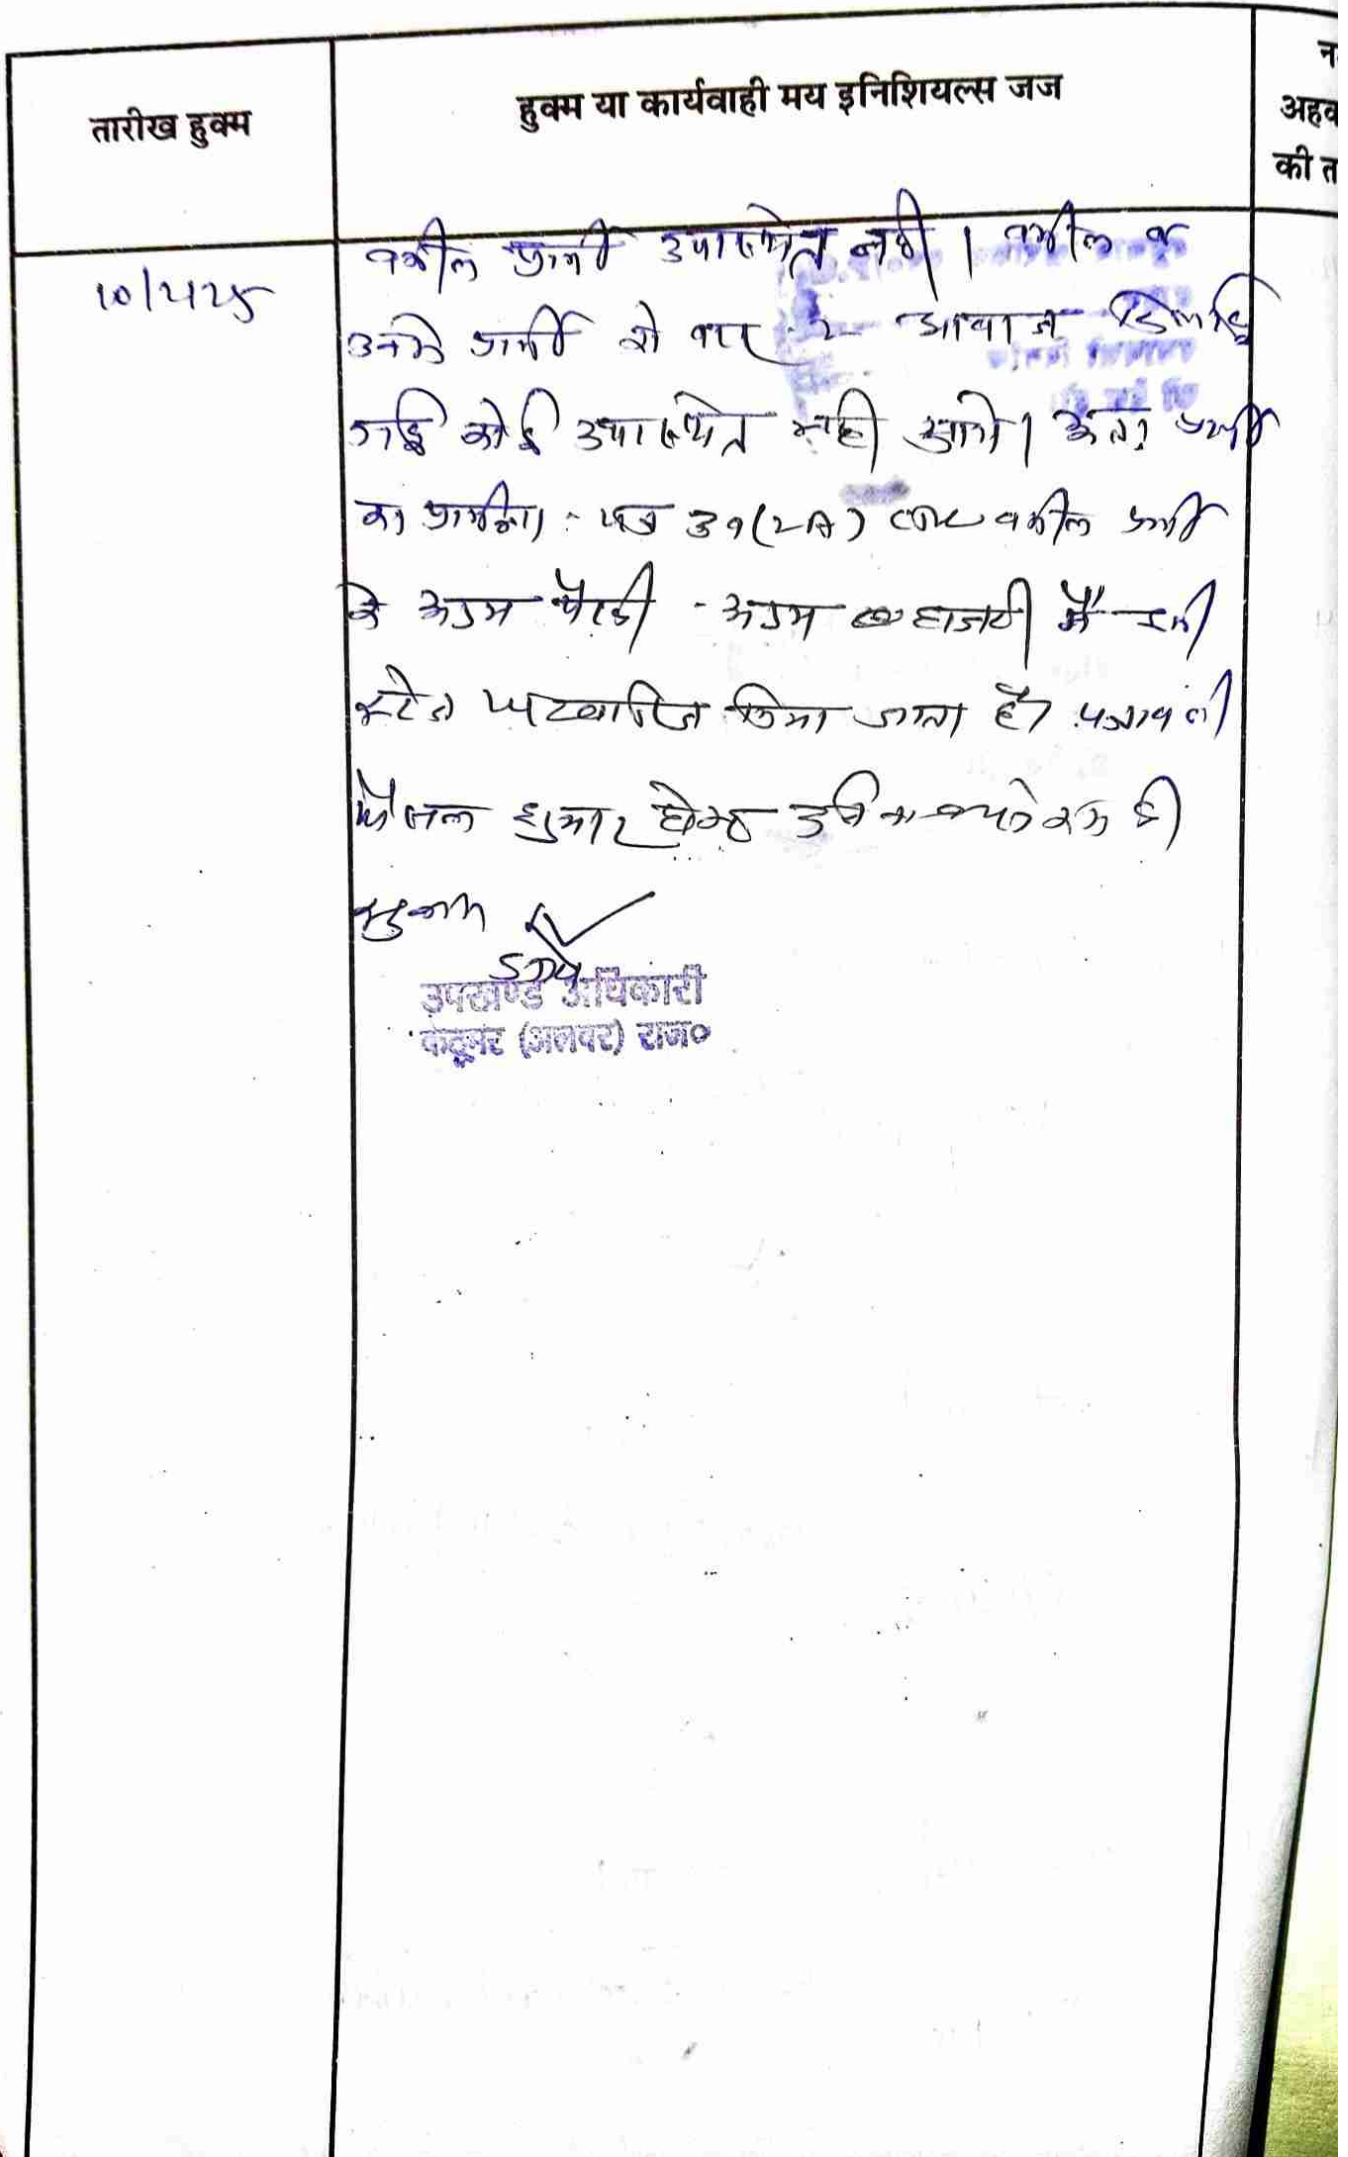 न
तारीख हुक्म
हुक्म या कार्यवाही मय इनिशियल्स जज
अहव
की त
वकील प्रार्थी उपस्थित नही । वकील व
उनके प्रार्थी को बार २ आवाज दिलाई
गई कोई उपस्थित नही आये। अतः प्रार्थी
का प्रार्थना पत्र वकील प्रार्थी
के अदम पैरवी - अदम हाजरी में इसी
स्टेज पर खारिज किया जाता है। पत्रावली
फैसल शुमार होकर
SDO
उपखण्ड अधिकारी
कठूमर (अलवर) राज०